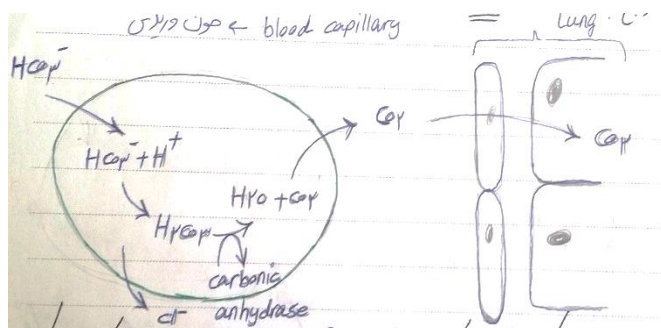 خون وریدی ← blood capillary
Lung
HCO۳⁻
HCO۳⁻ + H⁺
H۲CO۳
H۲O + CO۲
carbonic
anhydrase
Cl⁻
CO۲
CO۲